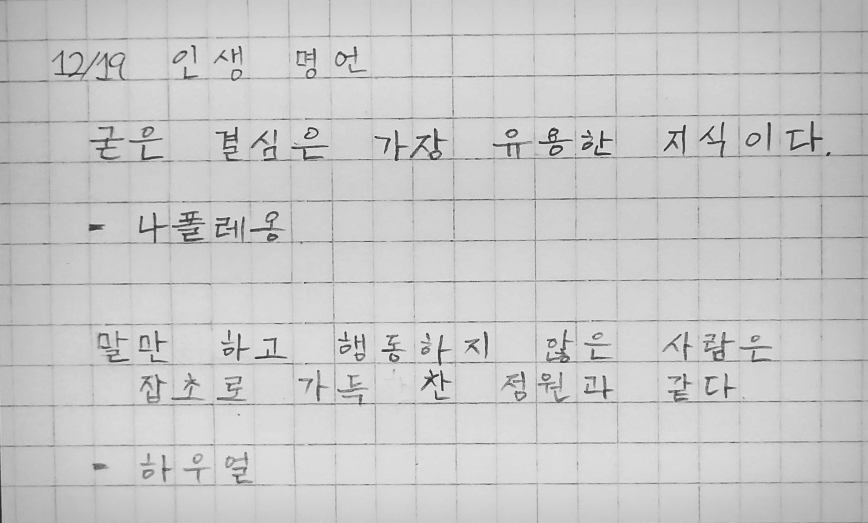 12/19 인생 명언
굳은 결심은 가장 유용한 지식이다.
- 나폴레옹
말만 하고 행동하지 않은 사람은
잡초로 가득 찬 정원과 같다
- 하우얼